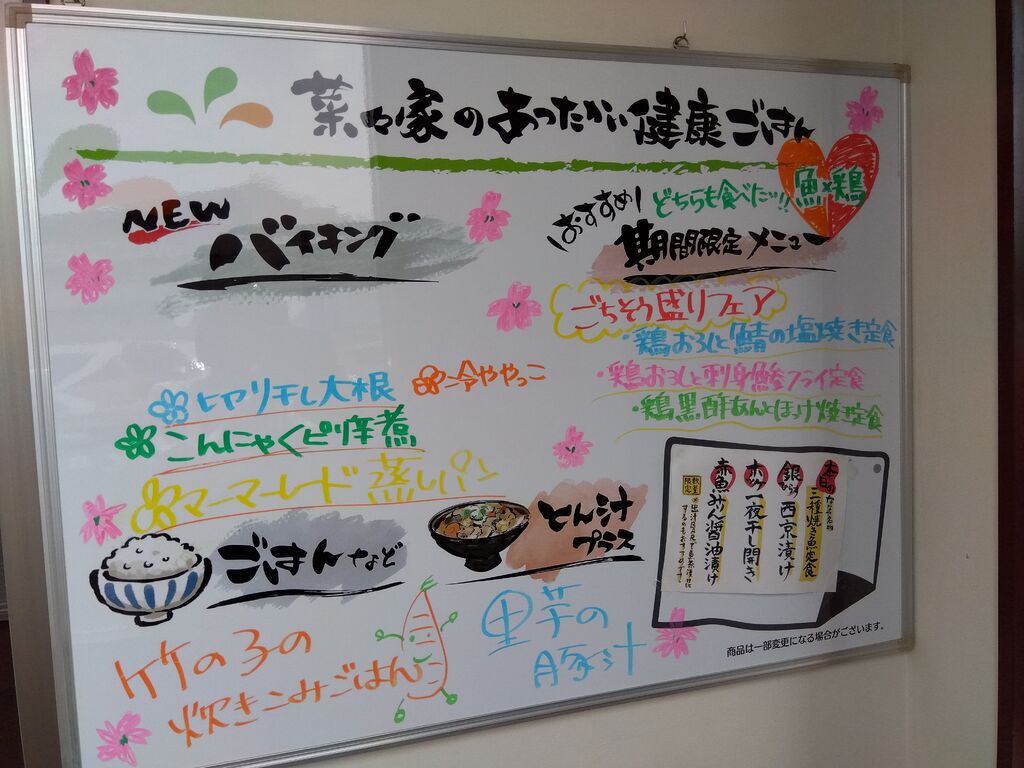 菜々家のあったかい健康ごはん
NEW
バイキング
ヒヤリキレ大根
冷ややっこ
こんにゃくピリ辛煮
マーマーレード蒸しパン
おすすめ!
どちらも食べたいッ!!
魚×鶏
期間限定メニュー
ごちそう盛りフェア
・鶏おろしと鯖の塩焼き定食
・鶏おろしと刺身鯵フライ定食
・鶏黒酢あんとほっけ焼き定食
ごはんなど
竹の子の
炊きこみごはん
とん汁
プラス
里芋の
豚汁
本日の
三種焼き魚定食
銀 西京漬け
ホッケ一夜干し開き
赤魚みりん醤油漬け
数量
限定
商品は一部変更になる場合がございます。